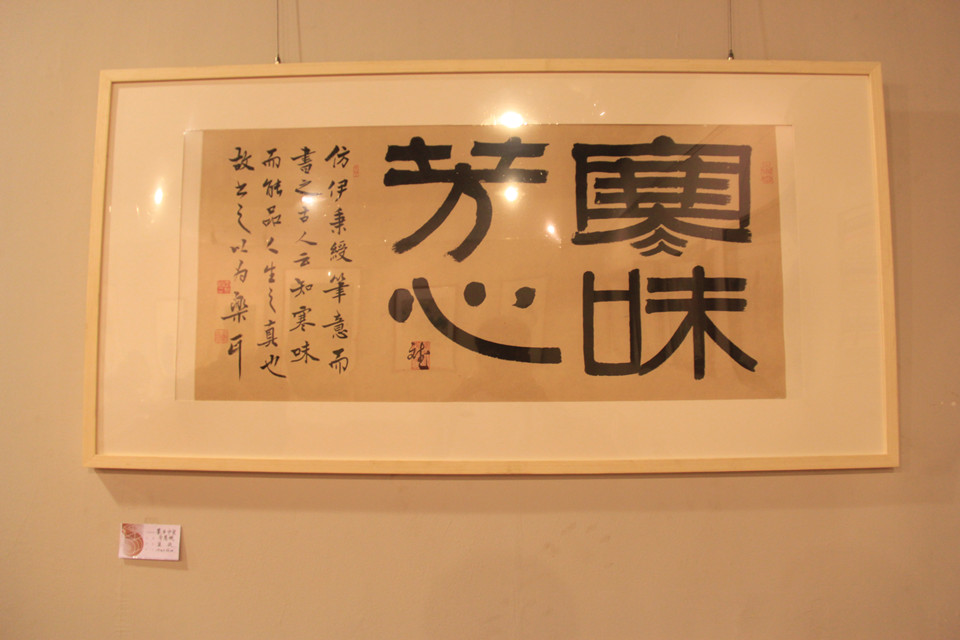 寒味
芳心
仿伊秉綬筆意而
書之古人云知寒味
而能品人生之真也
故书之以为樂耳